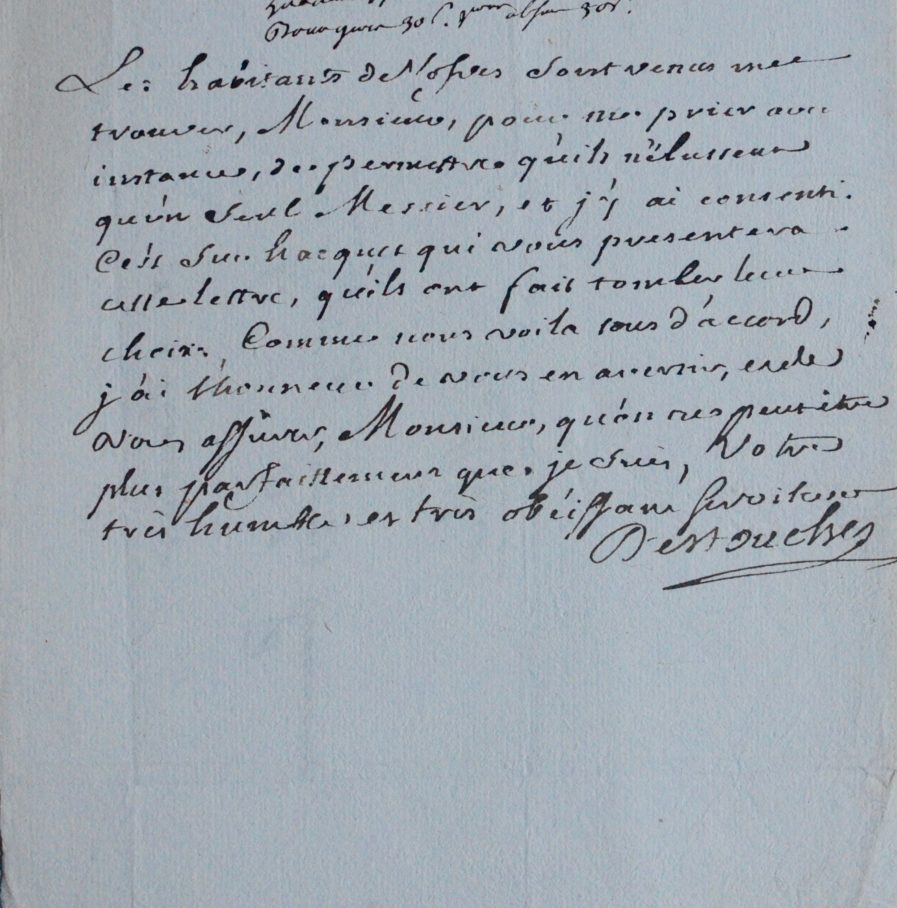 30 s.
Les habitants de Vosves sont venus me
trouver, Monsieur, pour me prier avec
instance, de permettre qu'ils n'élussent
qu'un seul Messier, et j'y ai consenti.
C'est sur hacquet qui vous presentera
cette lettre, qu'ils ont fait tomber leur
choix. Comme nous voila tous d'accord,
j'ai l'honneur de vous en avertir, et de
vous assurer, Monsieur, qu'on ne peut être
plus parfaittement que je suis, Votre
très humble et très obéissant serviteur
Destouches